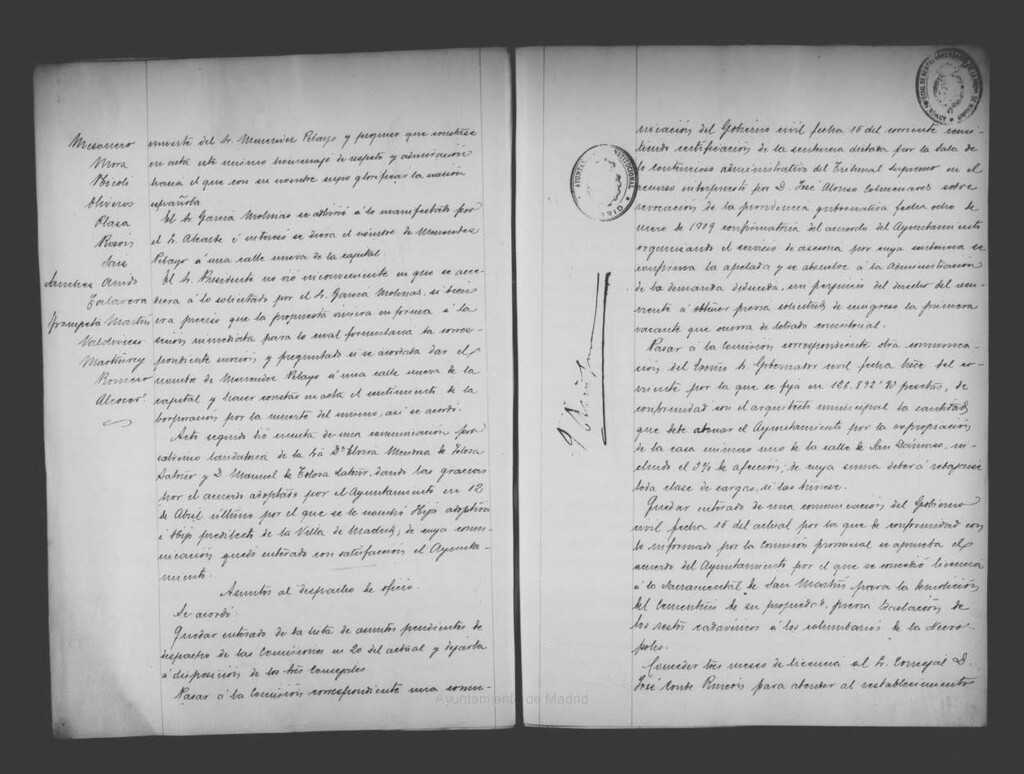 Mesonero
Mora
Nicoli
Oliveros
Plaza
Rosón
Saiz
Sanchez Anido
Talavera
Trompeta Martin
Valdivieso
Martinez
Romero
Alcocer
muerte del Sr. Menendez Pelayo y propuso que constase
en acta este mismo homenaje de respeto y admiración
hacia el que con su nombre supo glorificar la nación
española
El Sr. Garcia Molinas se adhirió á lo manifestado por
el Sr. Alcalde é interesó se diera el nombre de Menendez
Pelayo á una calle nueva de la capital.
El Sr. Presidente no vió inconveniente en que se acce-
diera á lo solicitado por el Sr. Garcia Molinas, si bien
era preciso que la propuesta viniera en forma á la
sesión inmediata para lo cual formularia la corres-
pondiente moción y preguntado si se acordaba dar el
nombre de Menendez Pelayo á una calle nueva de la
capital y hacer constar en acta el sentimiento de la
Corporación por la muerte del mismo, asi se acordó.
Acto seguido dió cuenta de una comunicación por
extremo laudatoria de la Sra Dª Elvira Mendoza de Tolosa
Latour y D. Manuel de Tolosa Latour, dando las gracias
por el acuerdo adoptado por el Ayuntamiento en 12
de Abril último por el que se le nombró Hija adoptiva
é Hijo predilecto de la Villa de Madrid; de cuya comu-
nicación quedó enterado con satisfacción el Ayunta-
miento.
Asuntos al despacho de oficio.
Se acordó:
Quedar enterado de la lista de asuntos pendientes de
despacho de las Comisiones en 20 del actual y dejarla
á disposición de los Sres Concejales
Pasar á la Comisión correspondiente una comu-
nicación del Gobierno civil fecha 15 del corriente remi-
tiendo certificación de la sentencia dictada por la Sala de
lo contencioso administrativo del Tribunal supremo en el
recurso interpuesto por D. José Alonso Colmenares sobre
revocación de la providencia gubernativa fecha ocho de
enero de 1909 confirmatoria del acuerdo del Ayuntamiento
organizando el servicio de asesoria por cuya sentencia se
confirma la apelada y se absuelve á la Administración
de la demanda deducida, sin perjuicio del derecho del recu-
rrente á obtener previa solicitud de reingreso la primera
vacante que ocurra de letrado consistorial.
Pasar á la Comisión correspondiente otra comunica-
ción del Excmo Sr. Gobernador civil fecha trece del co-
rriente por la que se fija en 126.892'70 pesetas, de
conformidad con el arquitecto municipal la cantidad
que debe abonar el Ayuntamiento por la expropiación
de la casa número uno de la calle de San Dámaso, in-
cluido el 3% de afección, de cuya suma deberá rebajarse
toda clase de cargas, si las tuviese.
Quedar enterado de una comunicación del Gobierno
civil fecha 15 del actual por la que de conformidad con
lo informado por la Comisión provincial se aprueba el
acuerdo del Ayuntamiento por el que se concedió licencia
á la Sacramental de San Martin para la demolición
del Cementerio de su propiedad, previa traslación de
los restos cadavéricos á los columbarios de la Necro-
polis.
Conceder tres meses de licencia al Sr. Concejal D.
José Conde Rincón para atender al restablecimiento
Ayuntamiento de Madrid